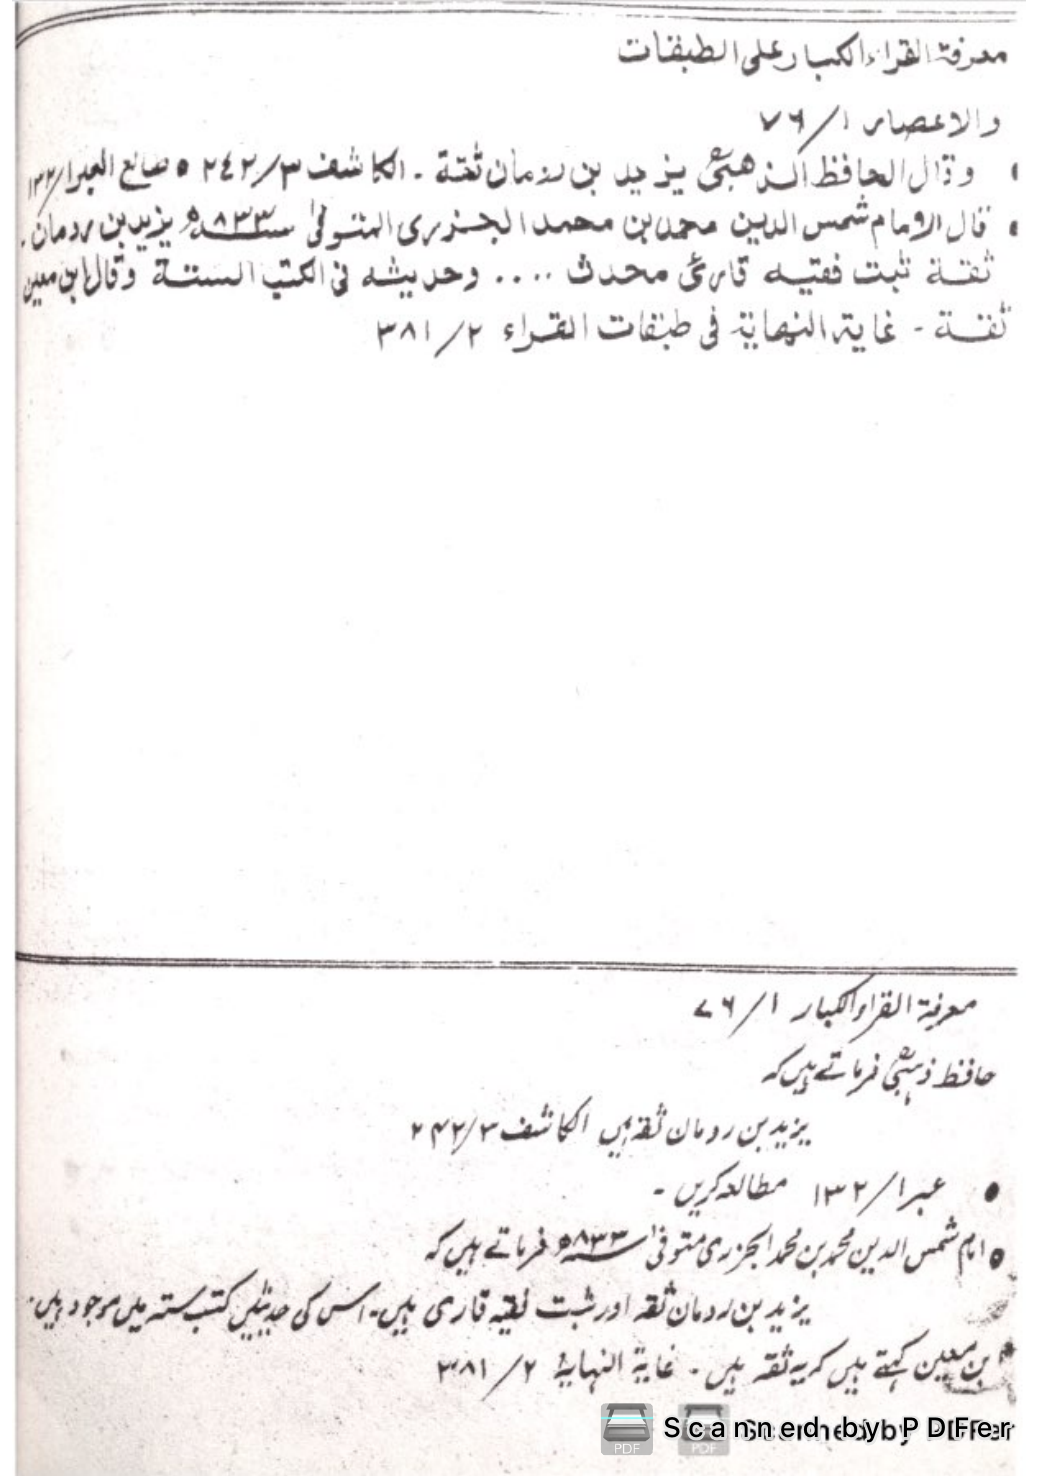 معرفة القراء الكبار على الطبقات
والاعصار ۱/۷۶
وقال الحافظ الذهبیؒ یزید بن رومان ثقة ۔ الكاشف ۳/۲٤۲ ٥ طالع العبر ۱/۱۳۲
قال الامام شمس الدين محمد بن محمد الجزری المتوفیٰ سنـ۸۳۳ـه یزید بن رومان ۔
ثقة ثبت فقیه قاری محدث .... وحدیثه فی الكتب الستة وقال ابن معین
ثقة ۔ غایة النهایة فی طبقات القراء ۲/۳۸۱
معرفة القراء الکبار ۱/۷۶
حافظ ذہبیؒ فرماتے ہیں کہ
یزید بن رومان ثقہ ہیں الکاشف ۳/۲۴۲
عبر ۱/۱۳۲ مطالعہ کریں ۔
امام شمس الدین محمد بن محمد الجزری متوفیٰ سنـ۸۳۳ـھ فرماتے ہیں کہ
یزید بن رومان ثقہ اور ثبت فقیہ قاری ہیں۔ اس کی حدیثیں کتب ستہ میں موجود ہیں۔
بن معین کہتے ہیں کہ یہ ثقہ ہیں ۔ غایة النهایة ۲/۳۸۱
PDF PDF Scanned by PDFer Scanned by PDFer